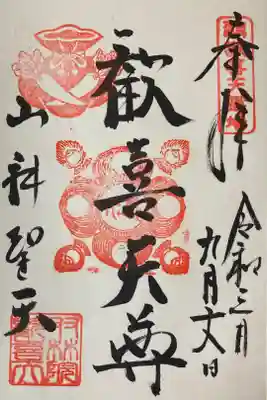 奉拝
令和三年
九月
歓喜天尊
山科聖天
双林院